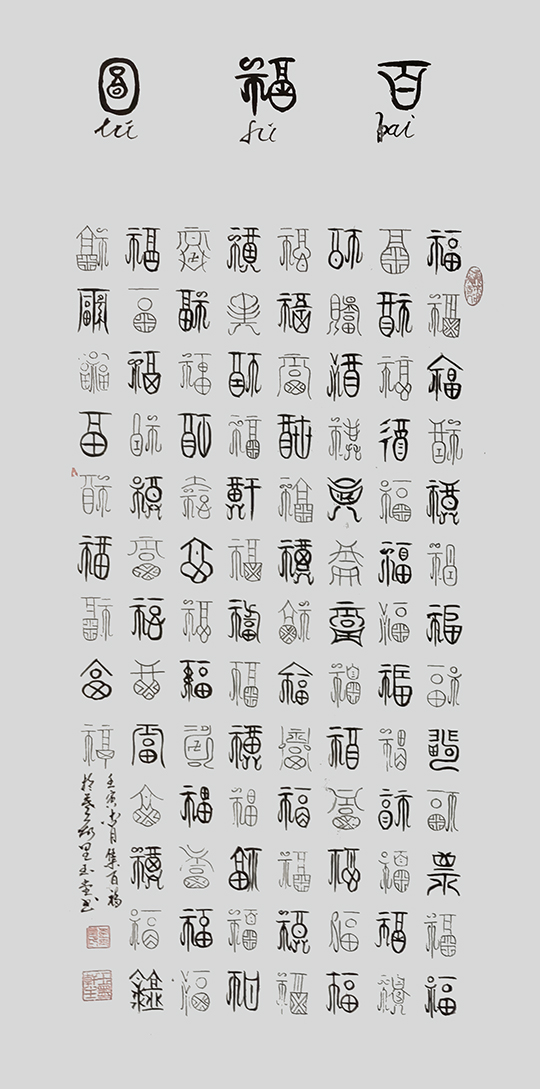 百福圖
bai fu tu
福福福福福福福福福福福福福
福福福福福福福福福福福福福
福福福福福福福福福福福福福
福福福福福福福福福福福福福
福福福福福福福福福福福福福
福福福福福福福福福福福福福
福福福福福福福福福福福福福
福福福福福福福福福
壬寅月集百福